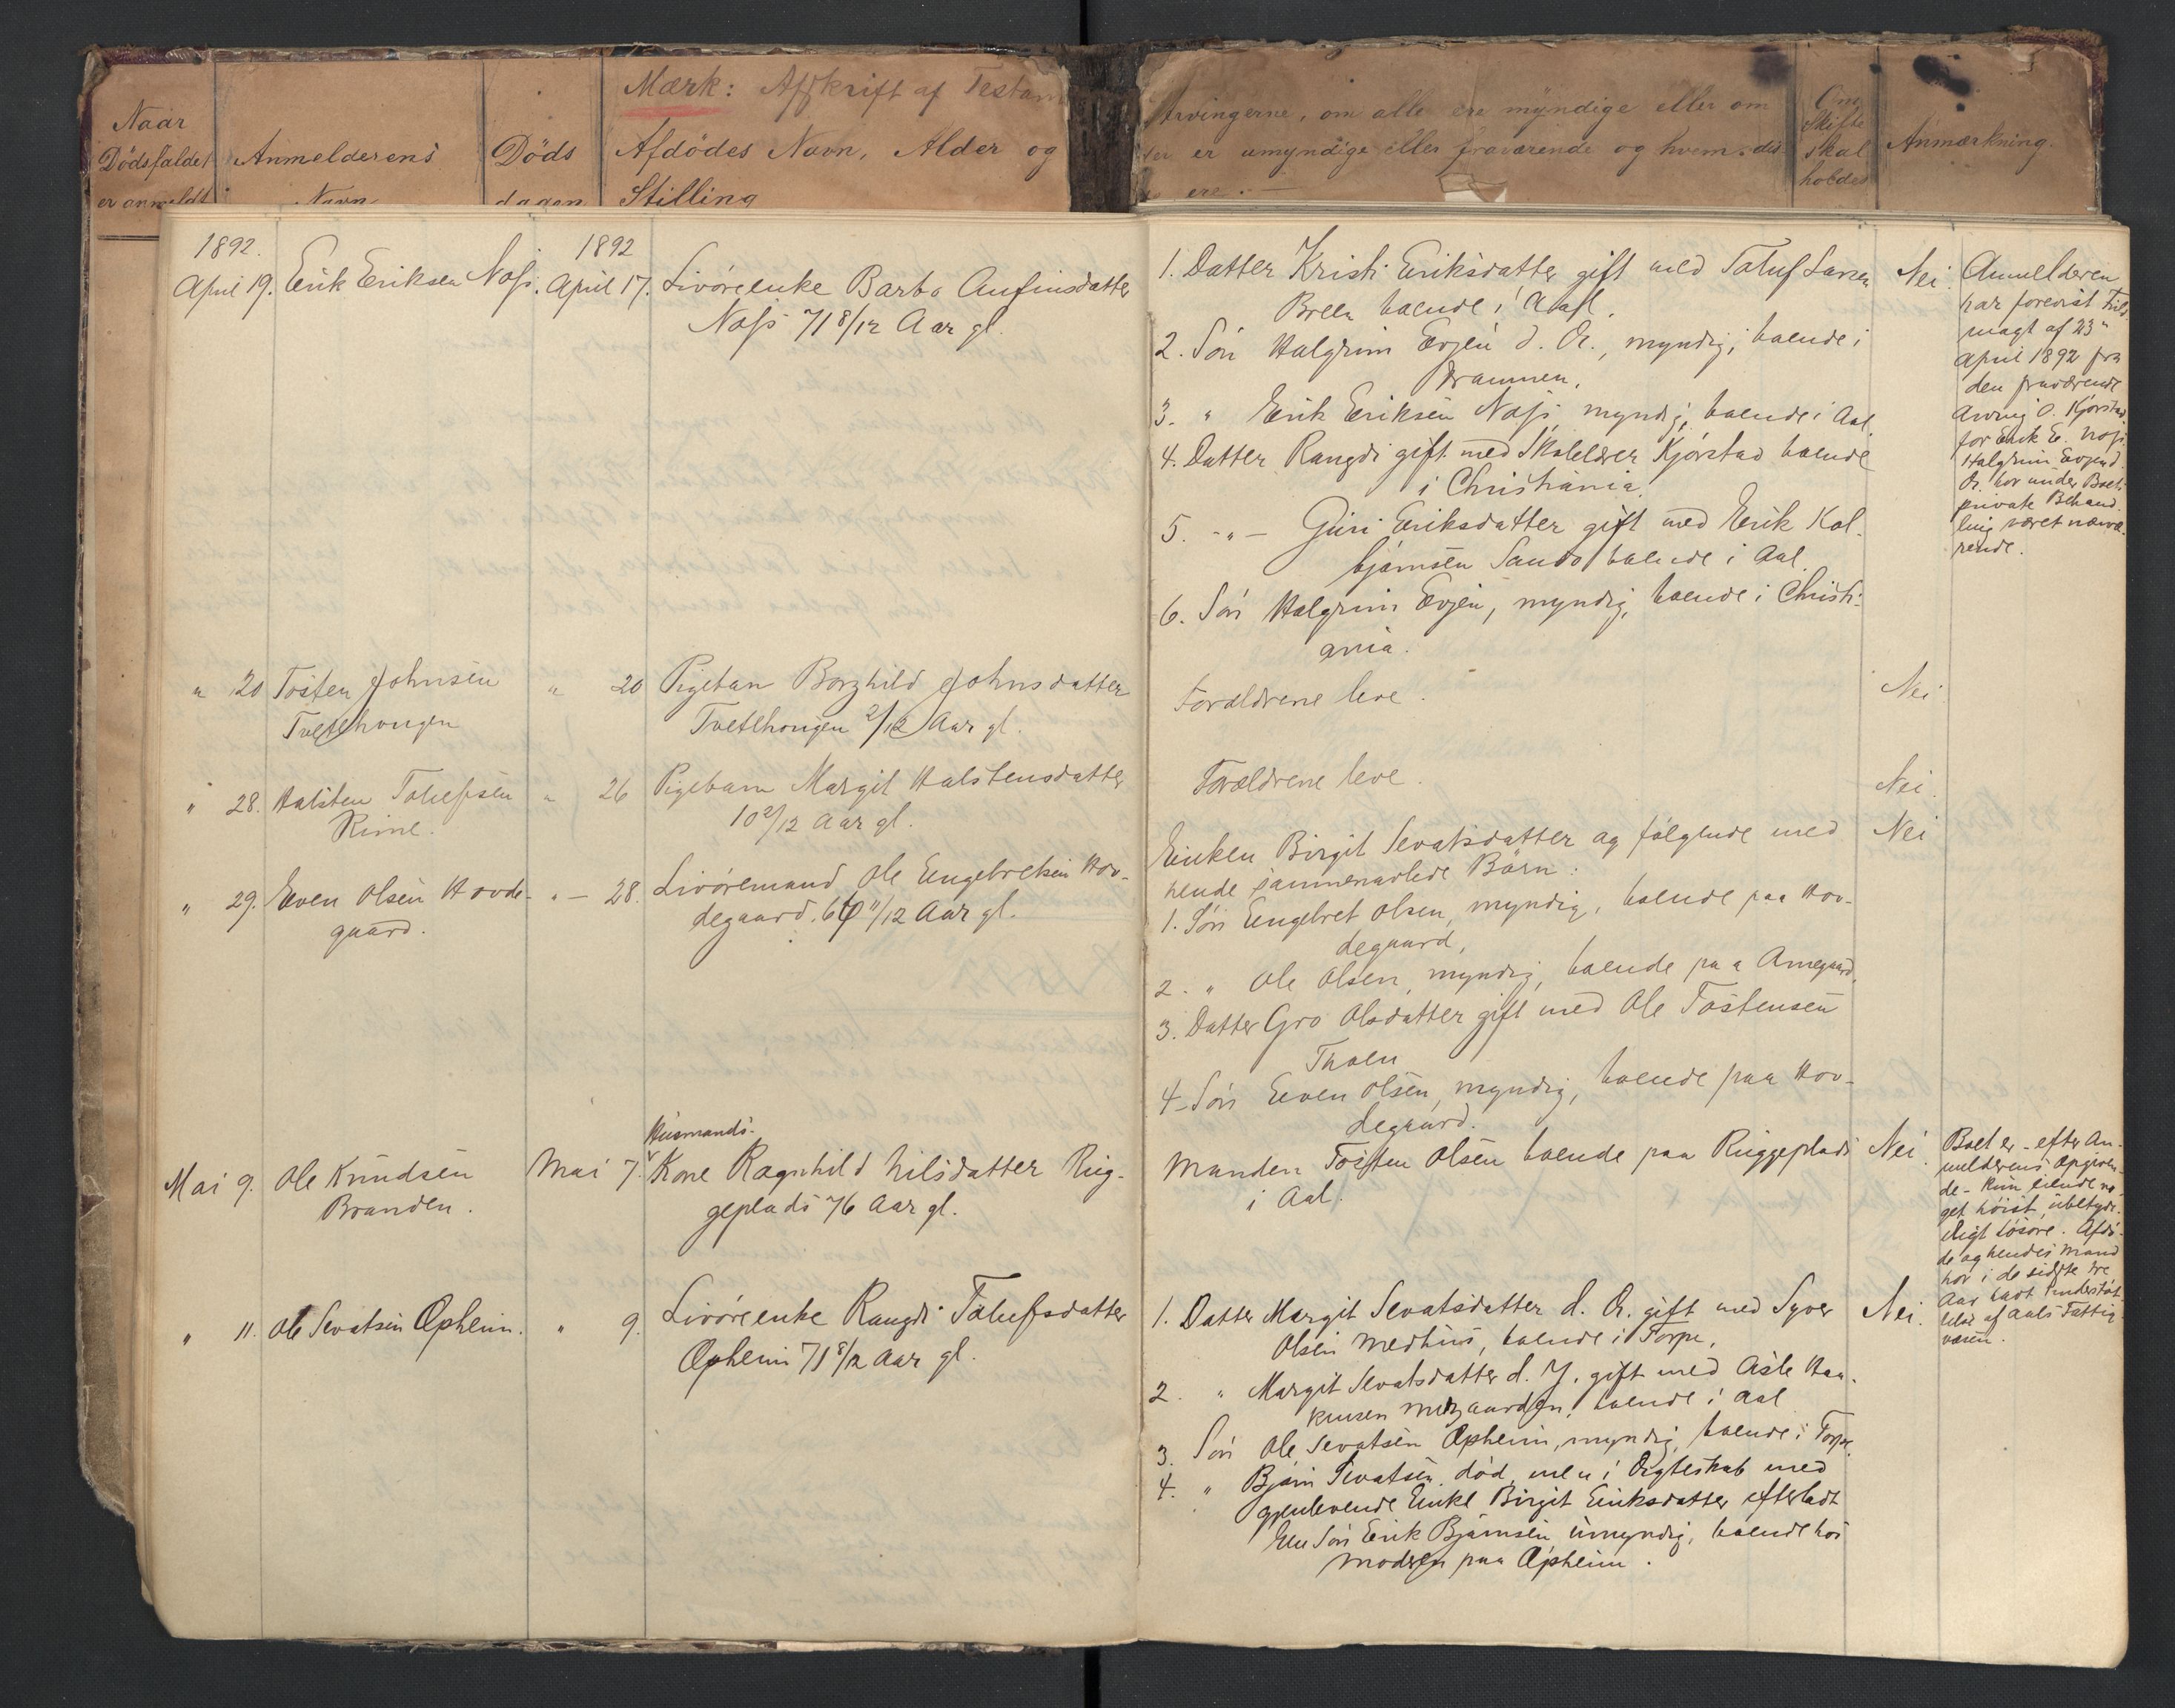 Mærk: Afskrift af
Naar
Dödsfaldet
er anmeldt
Anmelderens
Navn
Döds
dagen
Afdödes Navn, Alder og
Stilling
Arvingerne, om alle ere myndige eller om
er umyndige eller fraværende og hvem
ere.
Om
Skifte
skal
holdes
Anmærkning.
1892.
April 19. Erik Eriksen Næss.
1892
April 17. Livöreenke Barbo Aufinsdatter
Næss 71 8/12 Aar gl.
1. Datter Kristi Eriksdatter gift med Toluf Larsen
boende i
2. Sön Halgrim Evjen d. Æ., myndig, boende i
Drammen.
3. " Erik Eriksen Næss, myndig, boende i Aal.
4. Datter Rangdi gift med Skolelærer Kjörstad boende
i Christiania.
5. -"- Guri Eriksdatter gift med Erik Kol-
björnsen Sando boende i Aal.
6. Sön Halgrim Evjen, myndig, boende i Christi-
ania.
Nei.
Anmelderen
har forevist Fuld
magt af 23"
April 1892 fra
den fraværende
Arving O. Kjörstad
for Erik E. Næss.
Halgrim Evjen d.
Æ. har under Boets
private Behand-
ling været nærvæ-
rende.
" 20 Tosten Johnsen
Tvetehougen
" 20 Pigebarn Borghild Johnsdatter
Tvetehougen 2/12 Aar gl.
Forældrene leve.
Nei.
" 28. Halsten Tolefsen
Rime.
" 26 Pigebarn Margit Halstensdatter
10 2/12 Aar gl.
Forældrene leve.
Nei.
" 29. Even Olsen Hovde-
gaard.
" - 28. Livöremand Ole Engebretsen Hov-
degaard. 11/12 Aar gl.
Enken Birgit Sevatsdatter og fölgende med
hende sammenavlede Börn:
1. Sön Engebret Olsen, myndig, boende paa Hov-
degaard,
2. " Ole Olsen, myndig, boende paa
3. Datter Gro Olsdatter gift med Ole Tostensen
4. Sön Even Olsen, myndig, boende paa Hov-
degaard.
Nei
Mai 9. Ole Knudsen
Branden.
Mai 7.
Husmands-
Kone Ragnhild Nilsdatter Rug-
geplads 76 Aar gl.
Manden Tosten Olsen boende paa Ruggeplads
i Aal.
Nei.
Boet er - efter An-
melderens Opgiven-
de - kun eiende no-
get höist ubetyde-
ligt Lösöre. Afdö-
de og hendes Mand
har i de sidste tre
Aar havt Understöt-
telse af Aals Fattig-
væsen.
" 11. Ole Sevatsen Opheim.
" 9. Livöreenke Rangdi Tolufsdatter
Opheim 71 8/12 Aar gl.
1. Datter Margit Sevatsdatter d. Æ. gift med Syver
Olsen Medhus, boende i Torpe,
2. " Margit Sevatsdatter d. Y. gift med Asle Haa-
kensen boende i Aal
3. Sön Ole Sevatsen Opheim, myndig, boende i Torpe.
4. " Björn Sevatsen död, men i Ægteskab med
gjenlevende Enke Birgit Eriksdatter efterladt
Een Sön Erik Björnsen, umyndig, boende hos
Moderen paa Opheim.
Nei.